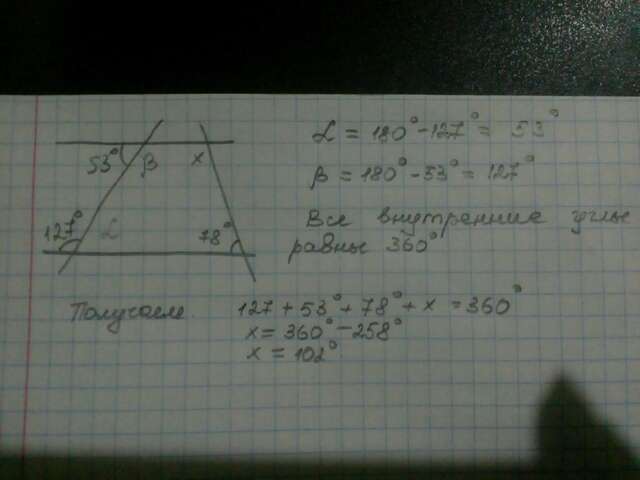 53° β x
127° α 78°
α = 180° - 127° = 53°
β = 180° - 53° = 127°
Все внутренние углы
равны 360°
Получаем. 127 + 53° + 78° + x = 360°
x = 360° - 258°
x = 102°